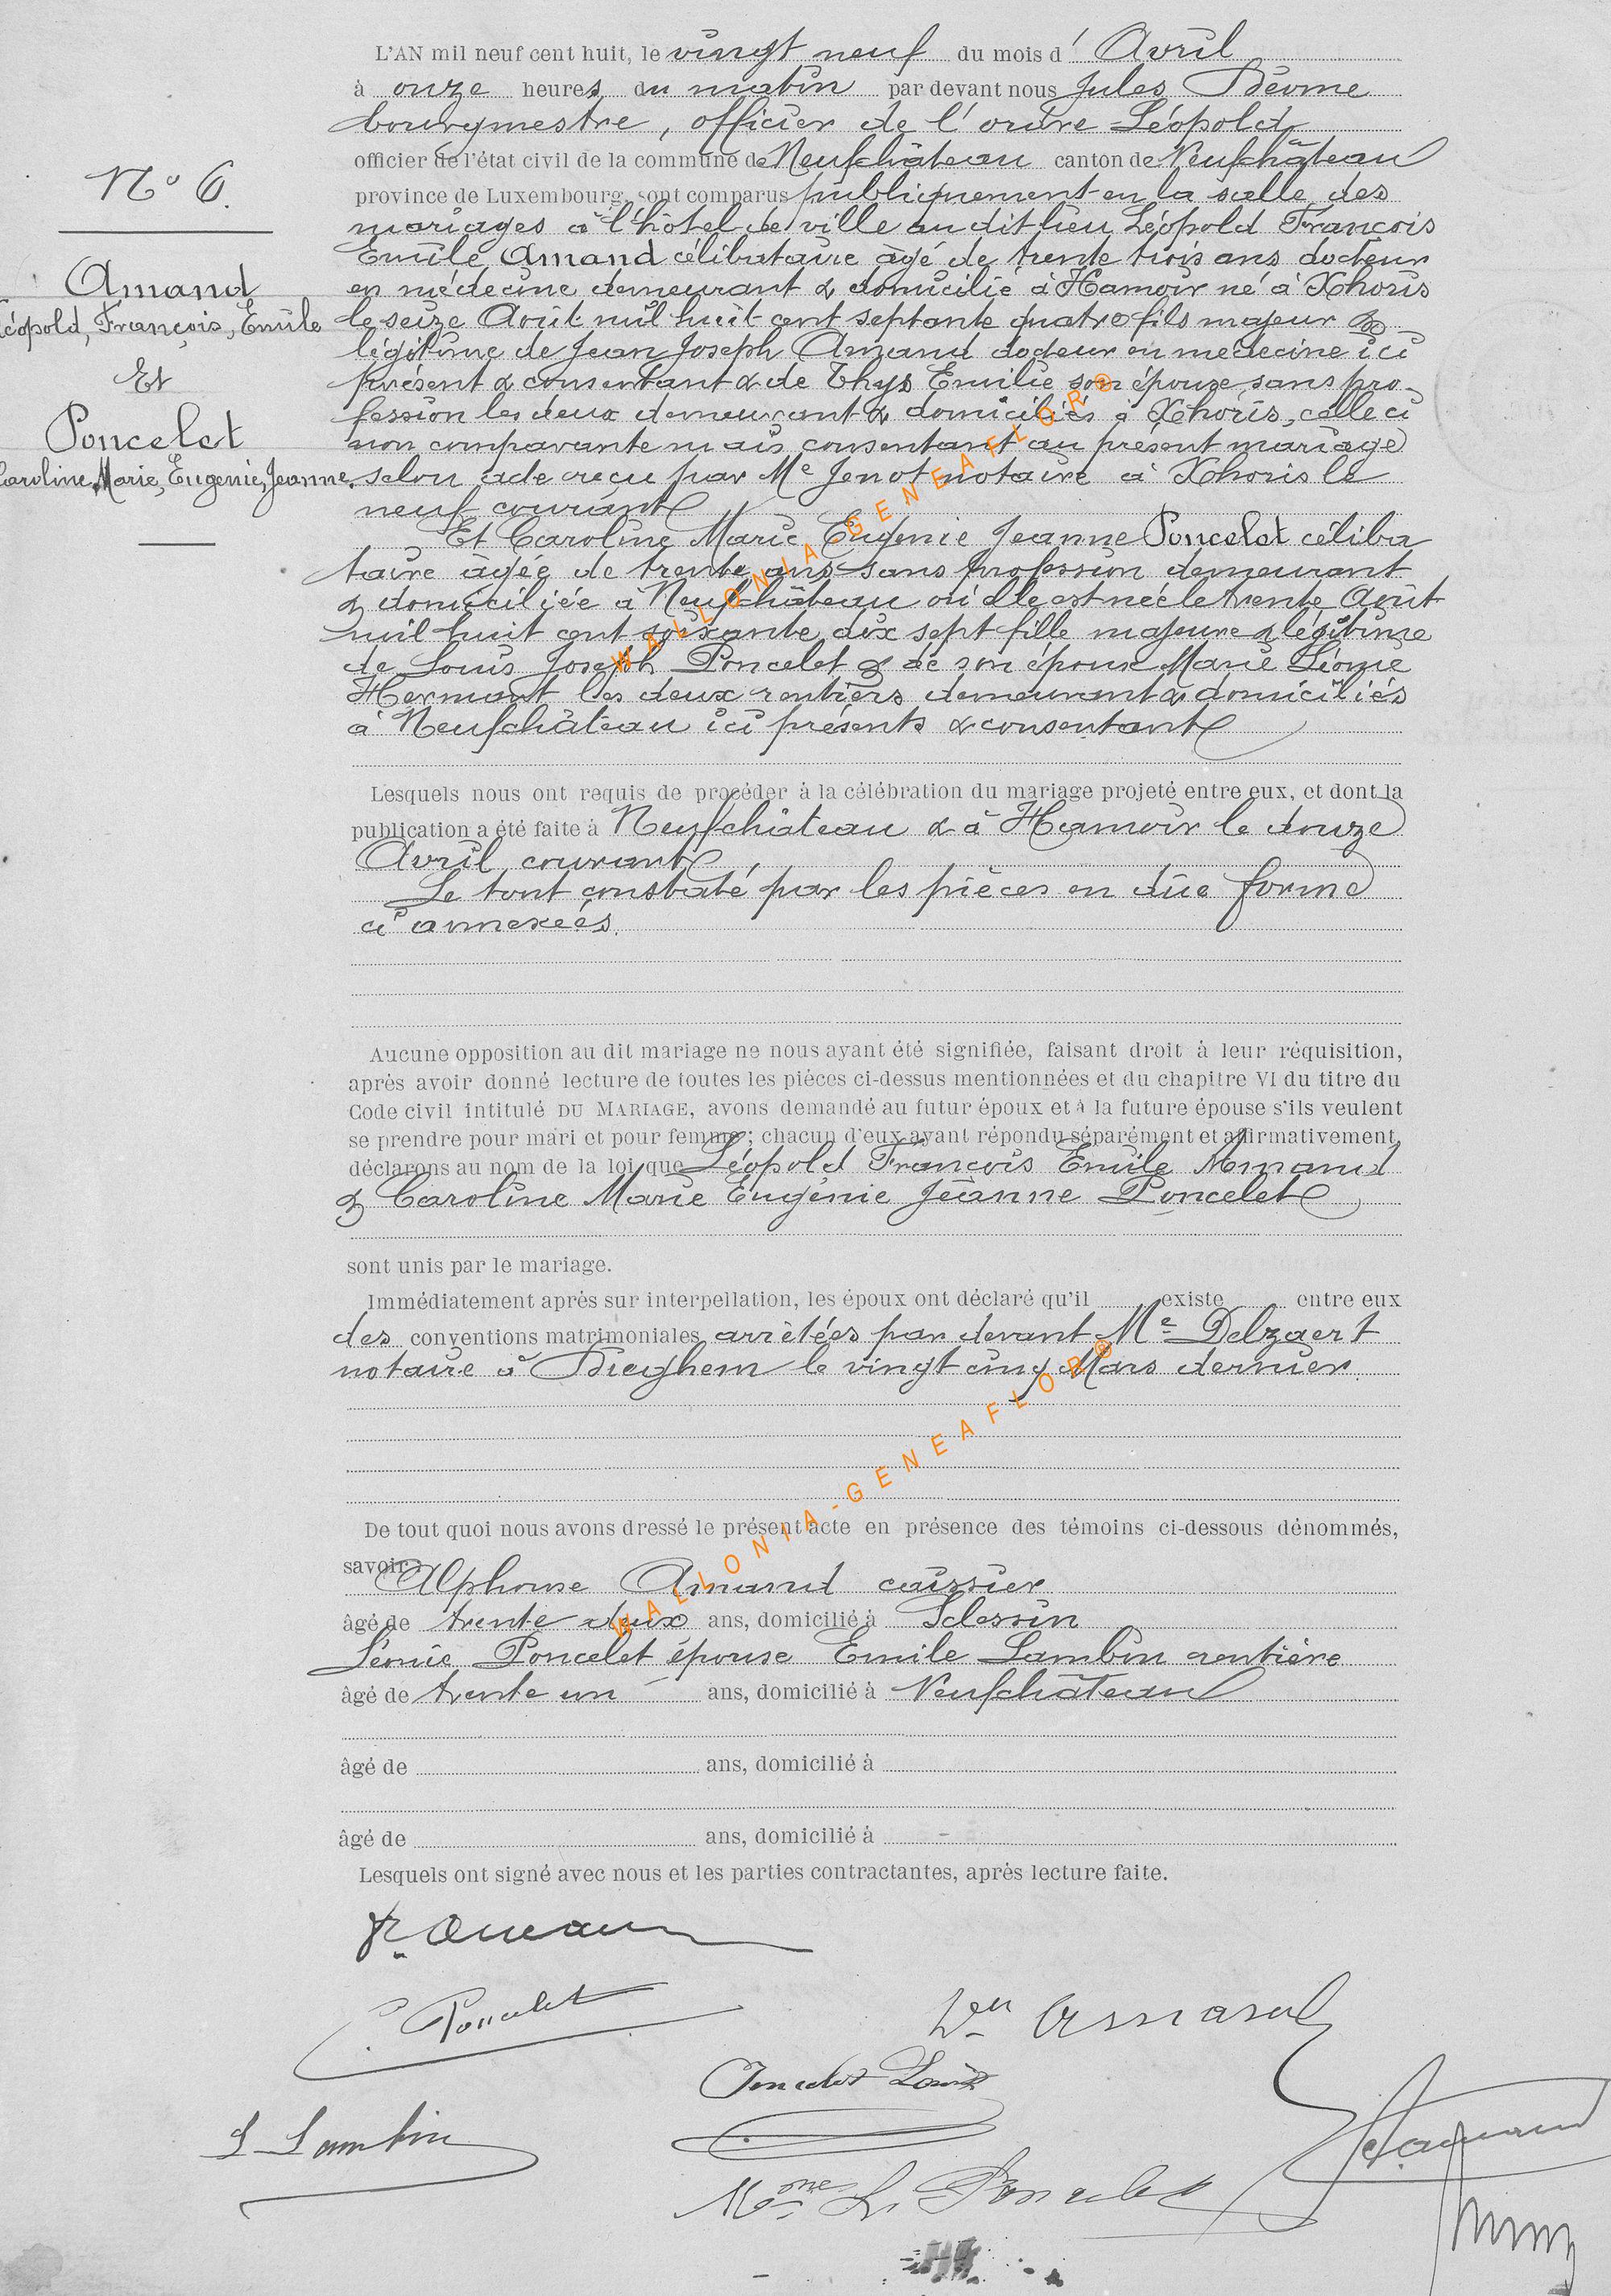 L'AN mil neuf cent huit, le vingt neuf du mois d' Avril
à onze heures du matin par devant nous Jules
bourgmestre, officier de l'ordre Léopold,
officier de l'état civil de la commune de Neufchâteau canton de Neufchâteau
province de Luxembourg, sont comparus publiquement en la salle des
mariages à l'hôtel de ville au dit lieu Léopold François
Emile Amand célibataire âgé de trente trois ans docteur
en médecine demeurant & domicilié à Hamoir né à Xhoris
le seize Août mil huit cent septante quatre fils majeur &
légitime de Jean Joseph Amand docteur en médecine ici
présent & consentant & de Thys Emilie son épouse sans pro-
fession les deux demeurant & domiciliés à Xhoris, celle ci
non comparante mais consentant au présent mariage
selon acte reçu par Me Jenot notaire à Xhoris le
neuf courant
Et Caroline Marie Eugenie Jeanne Poncelet céliba
taire âgée de trente ans sans profession demeurant
& domiciliée à Neufchâteau où elle est née le trente Août
mil huit cent soixante dix sept fille majeure & légitime
de Louis Joseph Poncelet & de son épouse Marie Léonie
Hermant les deux rentiers demeurant & domiciliés
à Neufchâteau ici présents & consentant
N° 6.
Amand
Léopold, François, Emile
Et
Poncelet
Caroline, Marie, Eugenie, Jeanne.
Lesquels nous ont requis de procéder à la célébration du mariage projeté entre eux, et dont la
publication a été faite à Neufchâteau & à Hamoir le douze
Avril courant
Le tout constaté par les pièces en dûe forme
ci annexées.
Aucune opposition au dit mariage ne nous ayant été signifiée, faisant droit à leur réquisition,
après avoir donné lecture de toutes les pièces ci-dessus mentionnées et du chapitre VI du titre du
Code civil intitulé DU MARIAGE, avons demandé au futur époux et à la future épouse s'ils veulent
se prendre pour mari et pour femme ; chacun d'eux ayant répondu séparément et affirmativement,
déclarons au nom de la loi que Léopold François Emile Amand
& Caroline Marie Eugénie Jeanne Poncelet
sont unis par le mariage.
Immédiatement après sur interpellation, les époux ont déclaré qu'il existe entre eux
des conventions matrimoniales arrêtées par devant Me Delzaert
notaire à Dieghem le vingt cinq Mars dernier.
De tout quoi nous avons dressé le présent acte en présence des témoins ci-dessous dénommés,
savoir:
Alphonse Amand caissier
âgé de trente deux ans, domicilié à Sclessin
Léonie Poncelet épouse Emile Lambin rentière
âgé de trente un ans, domicilié à Neufchâteau
âgé de ans, domicilié à
âgé de ans, domicilié à
Lesquels ont signé avec nous et les parties contractantes, après lecture faite.
C. Poncelet
Amand
Poncelet Louis
L Lambin
Mme L. Poncelet
WALLONIA-GENEAFLOR®
WALLONIA-GENEAFLOR®